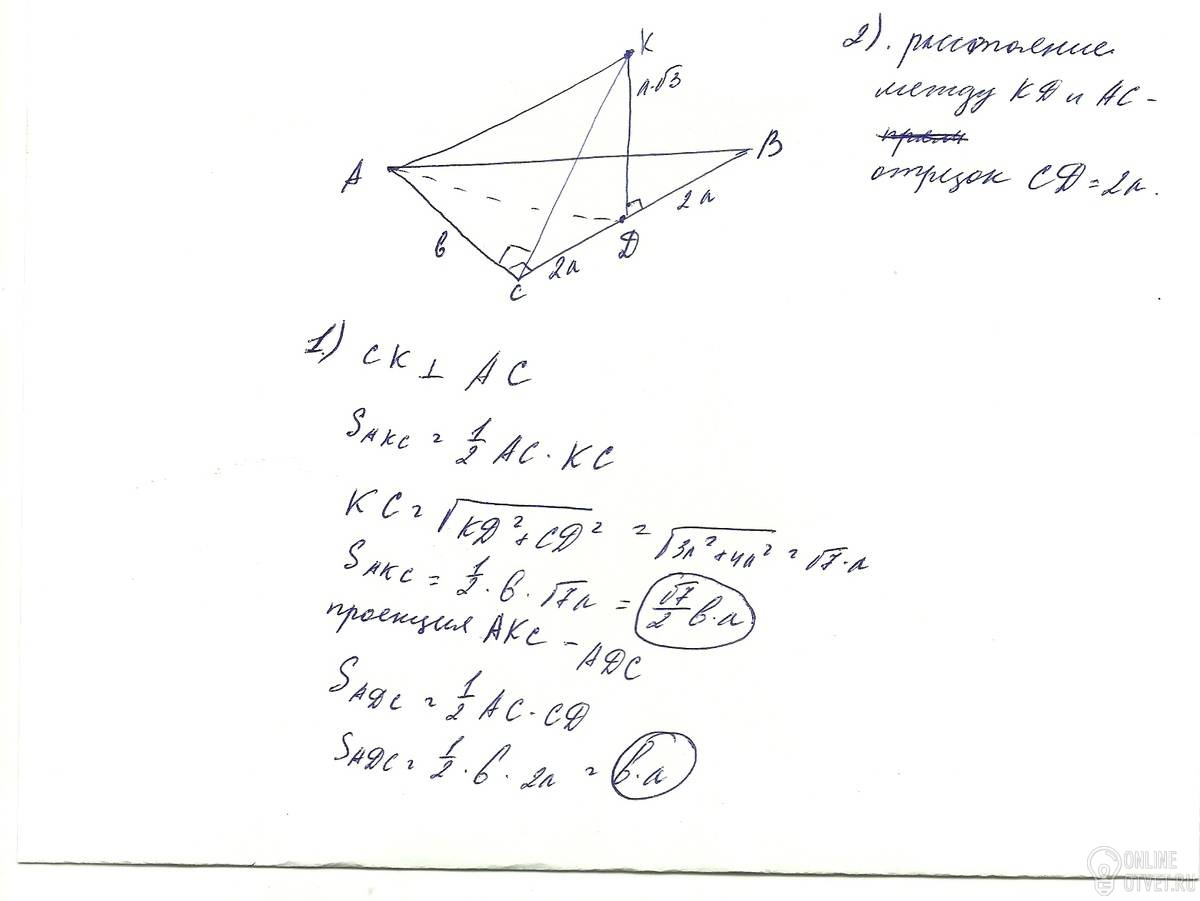 K
a·√3
A
B
в
2a
Д
2a
C
2). расстояние
между КД и АС -
отрезок СД = 2a.
1.) CK ⊥ AC
S_AKC = 1/2 AC · KC
KC = √(KД² + CД²) = √(3a² + 4a²) = √7·a
S_AKC = 1/2 · в · √7a = √7/2 в·a
проекция AKC - AДC
S_AДC = 1/2 AC · CД
S_AДC = 1/2 · в · 2a = в·a
ONLINE
OTVET.RU